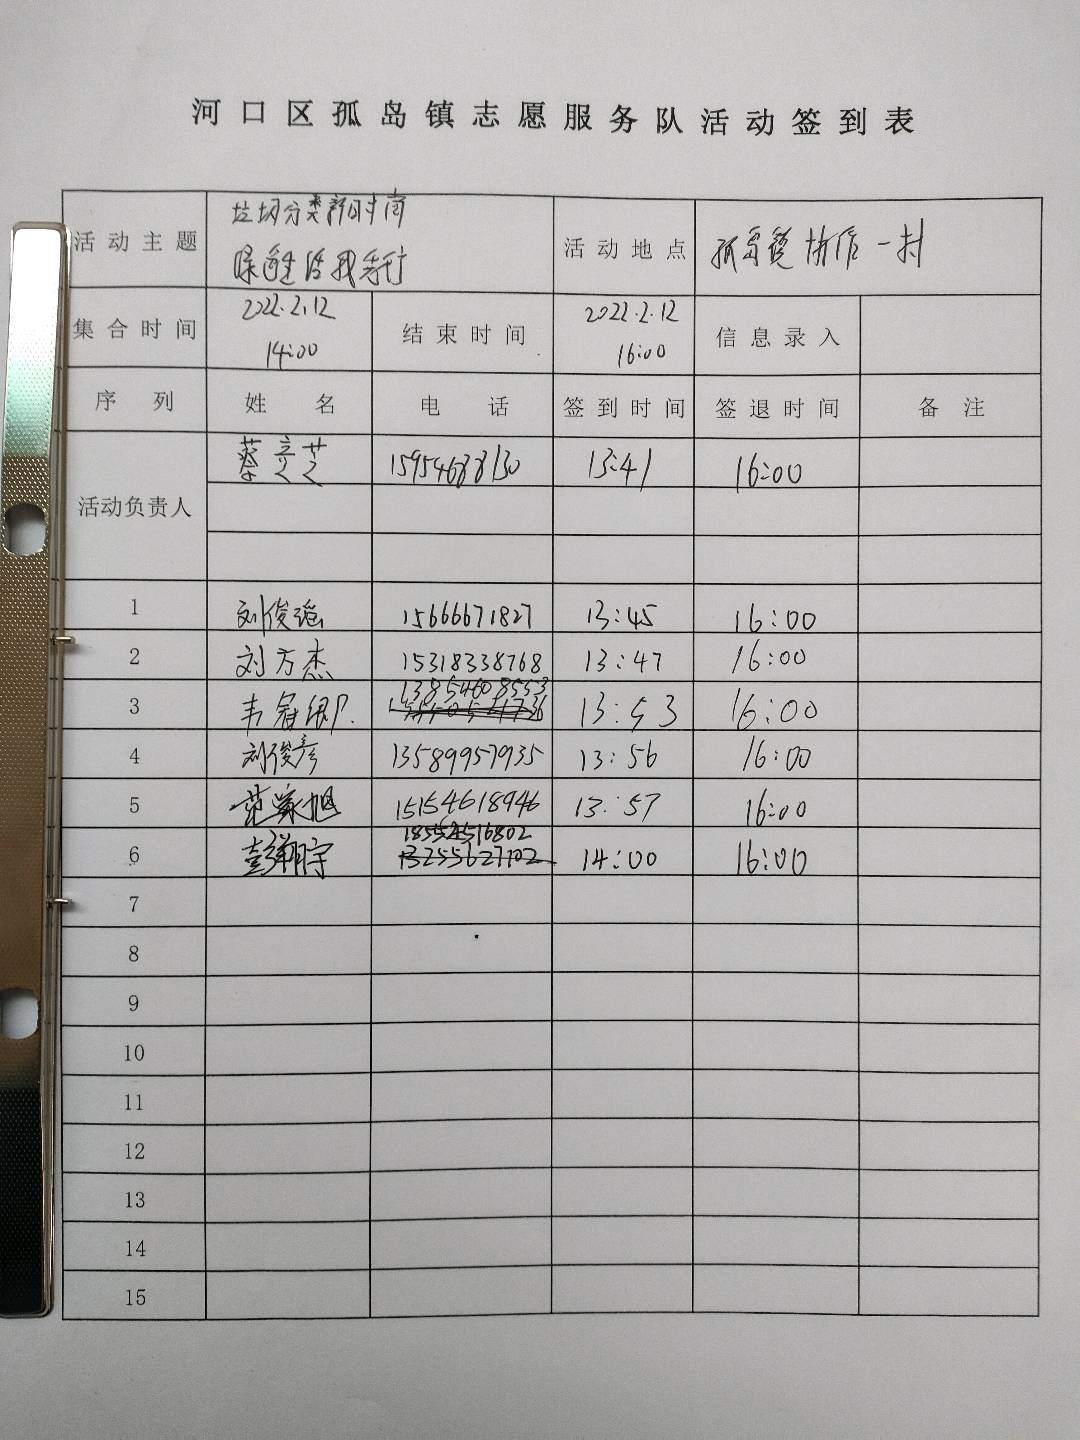 河口区孤岛镇志愿服务队活动签到表
活动主题 垃圾分类新时尚 活动地点 孤岛镇协作一村
集合时间 2022.2.12 14:00 结束时间 2022.2.12 16:00 信息录入
序列 姓名 电话 签到时间 签退时间 备注
活动负责人 蔡立芝 15954688130 13:41 16:00
1 刘俊瑶 15666671827 13:45 16:00
2 刘方杰 15318338768 13:47 16:00
3 韦冠 13854608553 13:53 16:00
4 刘俊彦 13589957935 13:56 16:00
5 范家旭 15154618946 13:57 16:00
6 彭翔宇 18554516802 14:00 16:00
13255627102
7
8
9
10
11
12
13
14
15